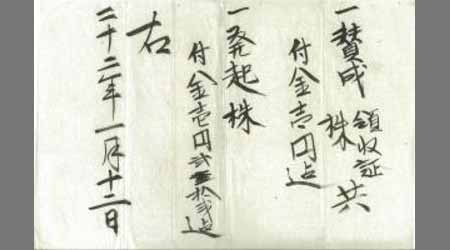 一賛成株 領収証共
付金壱円也
一発起株
付金壱円弐拾弐也
右
二十二年一月十二日